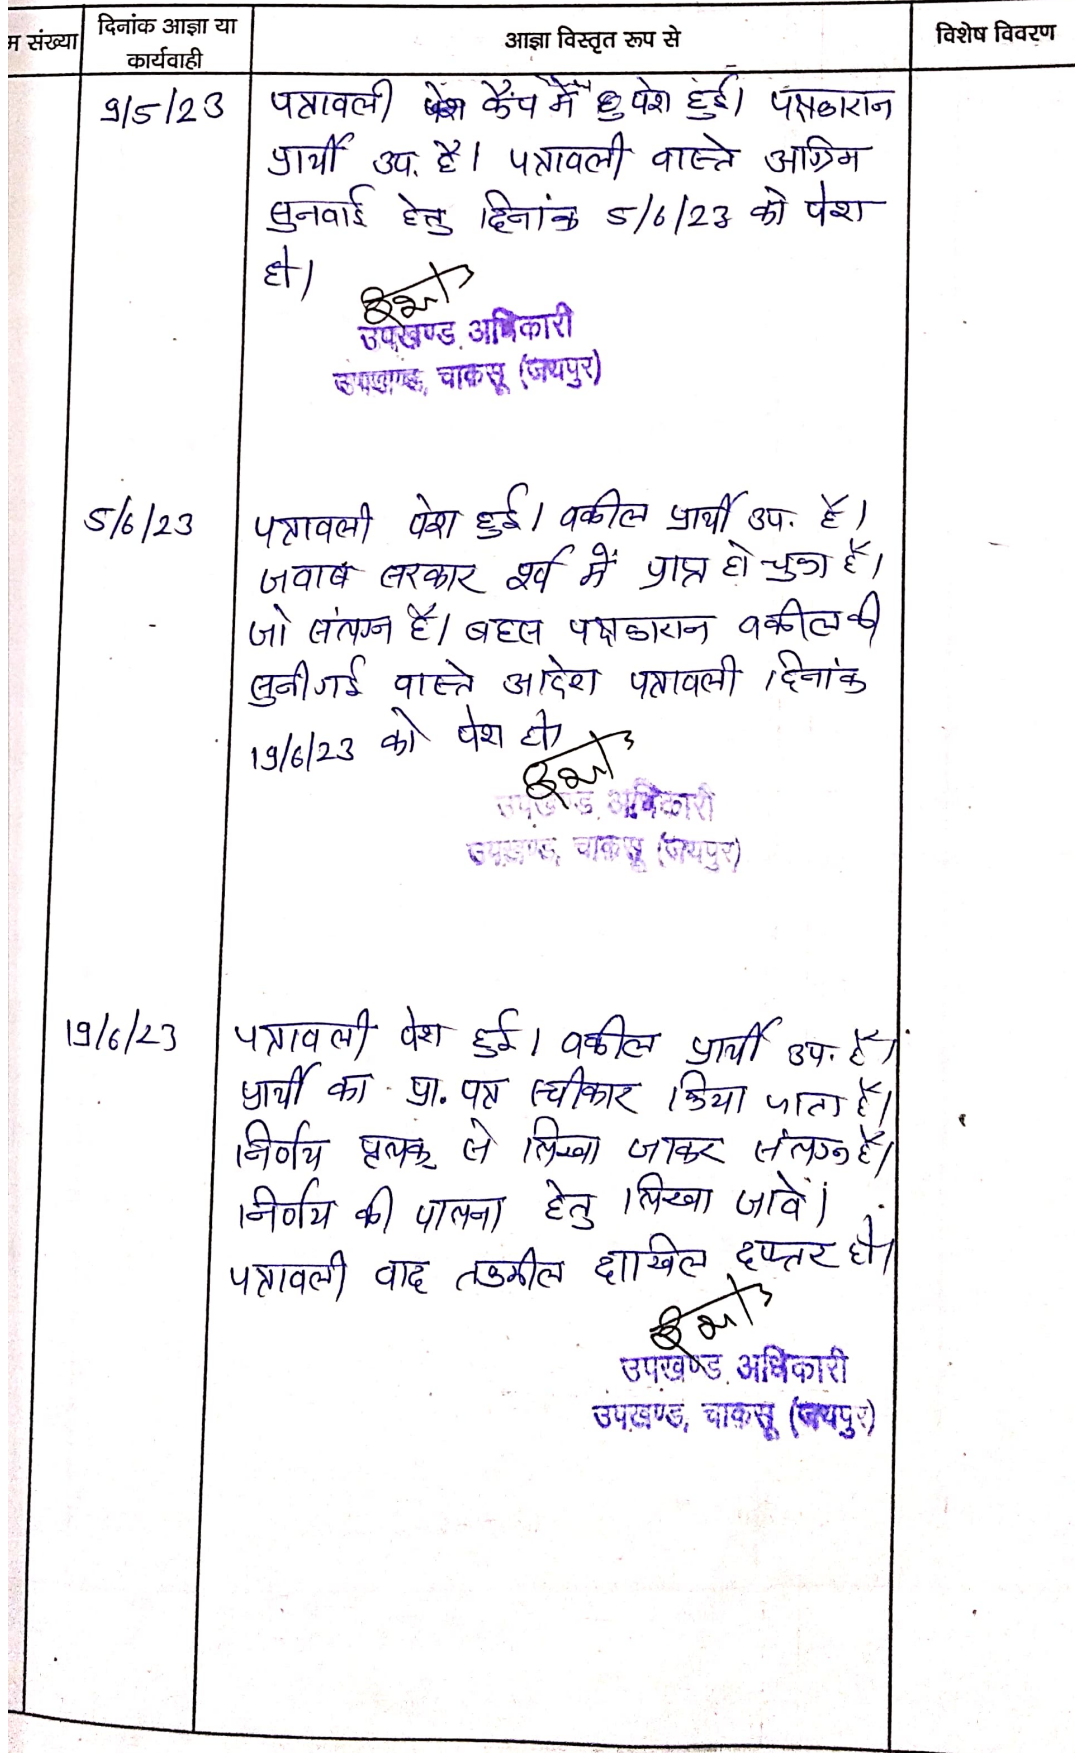 म संख्या
दिनांक आज्ञा या
कार्यवाही
आज्ञा विस्तृत रूप से
विशेष विवरण
9/5/23
पत्रावली कैंप में पेश हुई। पक्षकारान
प्रार्थी उप. है। पत्रावली वास्ते अग्रिम
सुनवाई हेतु दिनांक 5/6/23 को पेश
हो।
उपखण्ड अधिकारी
उपखण्ड, चाकसू (जयपुर)
5/6/23
पत्रावली पेश हुई। वकील प्रार्थी उप. है।
जवाब सरकार पूर्व में प्राप्त हो चुका है।
जो संलग्न है। बहस पक्षकारान वकील की
सुनी गई वास्ते आदेश पत्रावली दिनांक
19/6/23 को पेश हो
उपखण्ड अधिकारी
उपखण्ड, चाकसू (जयपुर)
19/6/23
पत्रावली पेश हुई। वकील प्रार्थी उप. है।
प्रार्थी का प्रा. पत्र स्वीकार किया जाता है।
निर्णय पृथक से लिखा जाकर संलग्न है।
निर्णय की पालना हेतु लिखा जावें।
पत्रावली वाद तकमील दाखिल दफ्तर हो।
उपखण्ड अधिकारी
उपखण्ड, चाकसू (जयपुर)